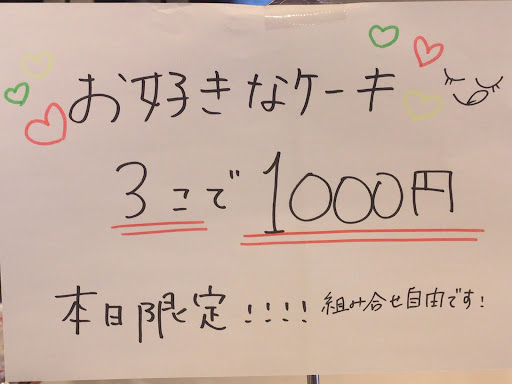 お好きなケーキ
3こで1000円
本日限定!!!! 組み合せ自由です!